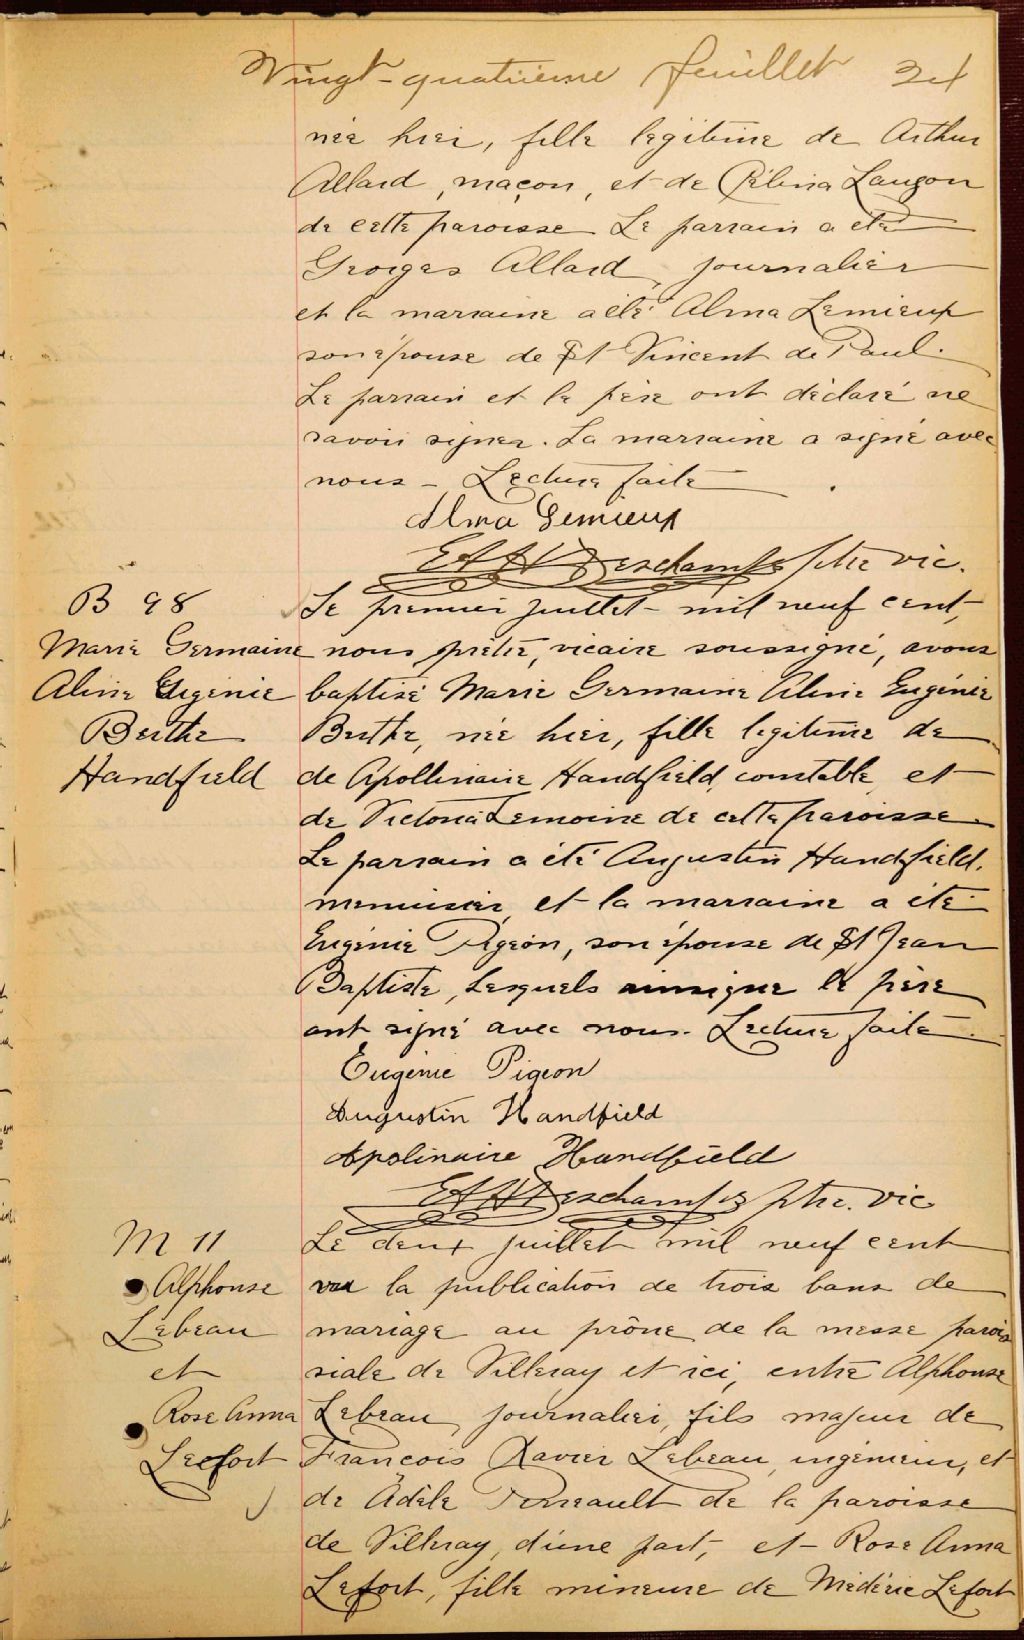 Vingt-quatrième feuillet 24
née hier, fille légitime de Arthur
Allard, maçon, et de Célina Lauzon
de cette paroisse Le parrain a été
Georges Allard, journalier
et la marraine a été Alma Lemieux
son épouse de St Vincent de Paul.
Le parrain et le père ont déclaré ne
savoir signer. La marraine a signé avec
nous - Lecture faite
Alma Lemieux
Deschamps ptre vic.
B 98
Marie Germaine
Aline Eugénie
Berthe
Handfield
Le premier juillet mil neuf cent,
nous prêtre, vicaire soussigné, avons
baptisé Marie Germaine Aline Eugénie
Berthe, née hier, fille légitime de
de Apollinaire Handfield, constable, et
de Victoria Lemoine de cette paroisse.
Le parrain a été Augustin Handfield,
menuisier, et la marraine a été
Eugénie Pigeon, son épouse de St Jean
Baptiste, Lesquels ainsi que le père
ont signé avec nous. Lecture faite.
Eugénie Pigeon
Augustin Handfield
Apolinaire Handfield
Deschamps ptre. vic
M 11
Alphonse
Lebeau
et
Rose Anna
Lefort
Le deux juillet mil neuf cent
vu la publication de trois bans de
mariage au prône de la messe parois
siale de Villeray et ici, entre Alphonse
Lebeau, journalier, fils majeur de
François Xavier Lebeau, ingénieur, et
de Adèle Perreault de la paroisse
de Villeray, d'une part, et Rose Anna
Lefort, fille mineure de Médéric Lefort